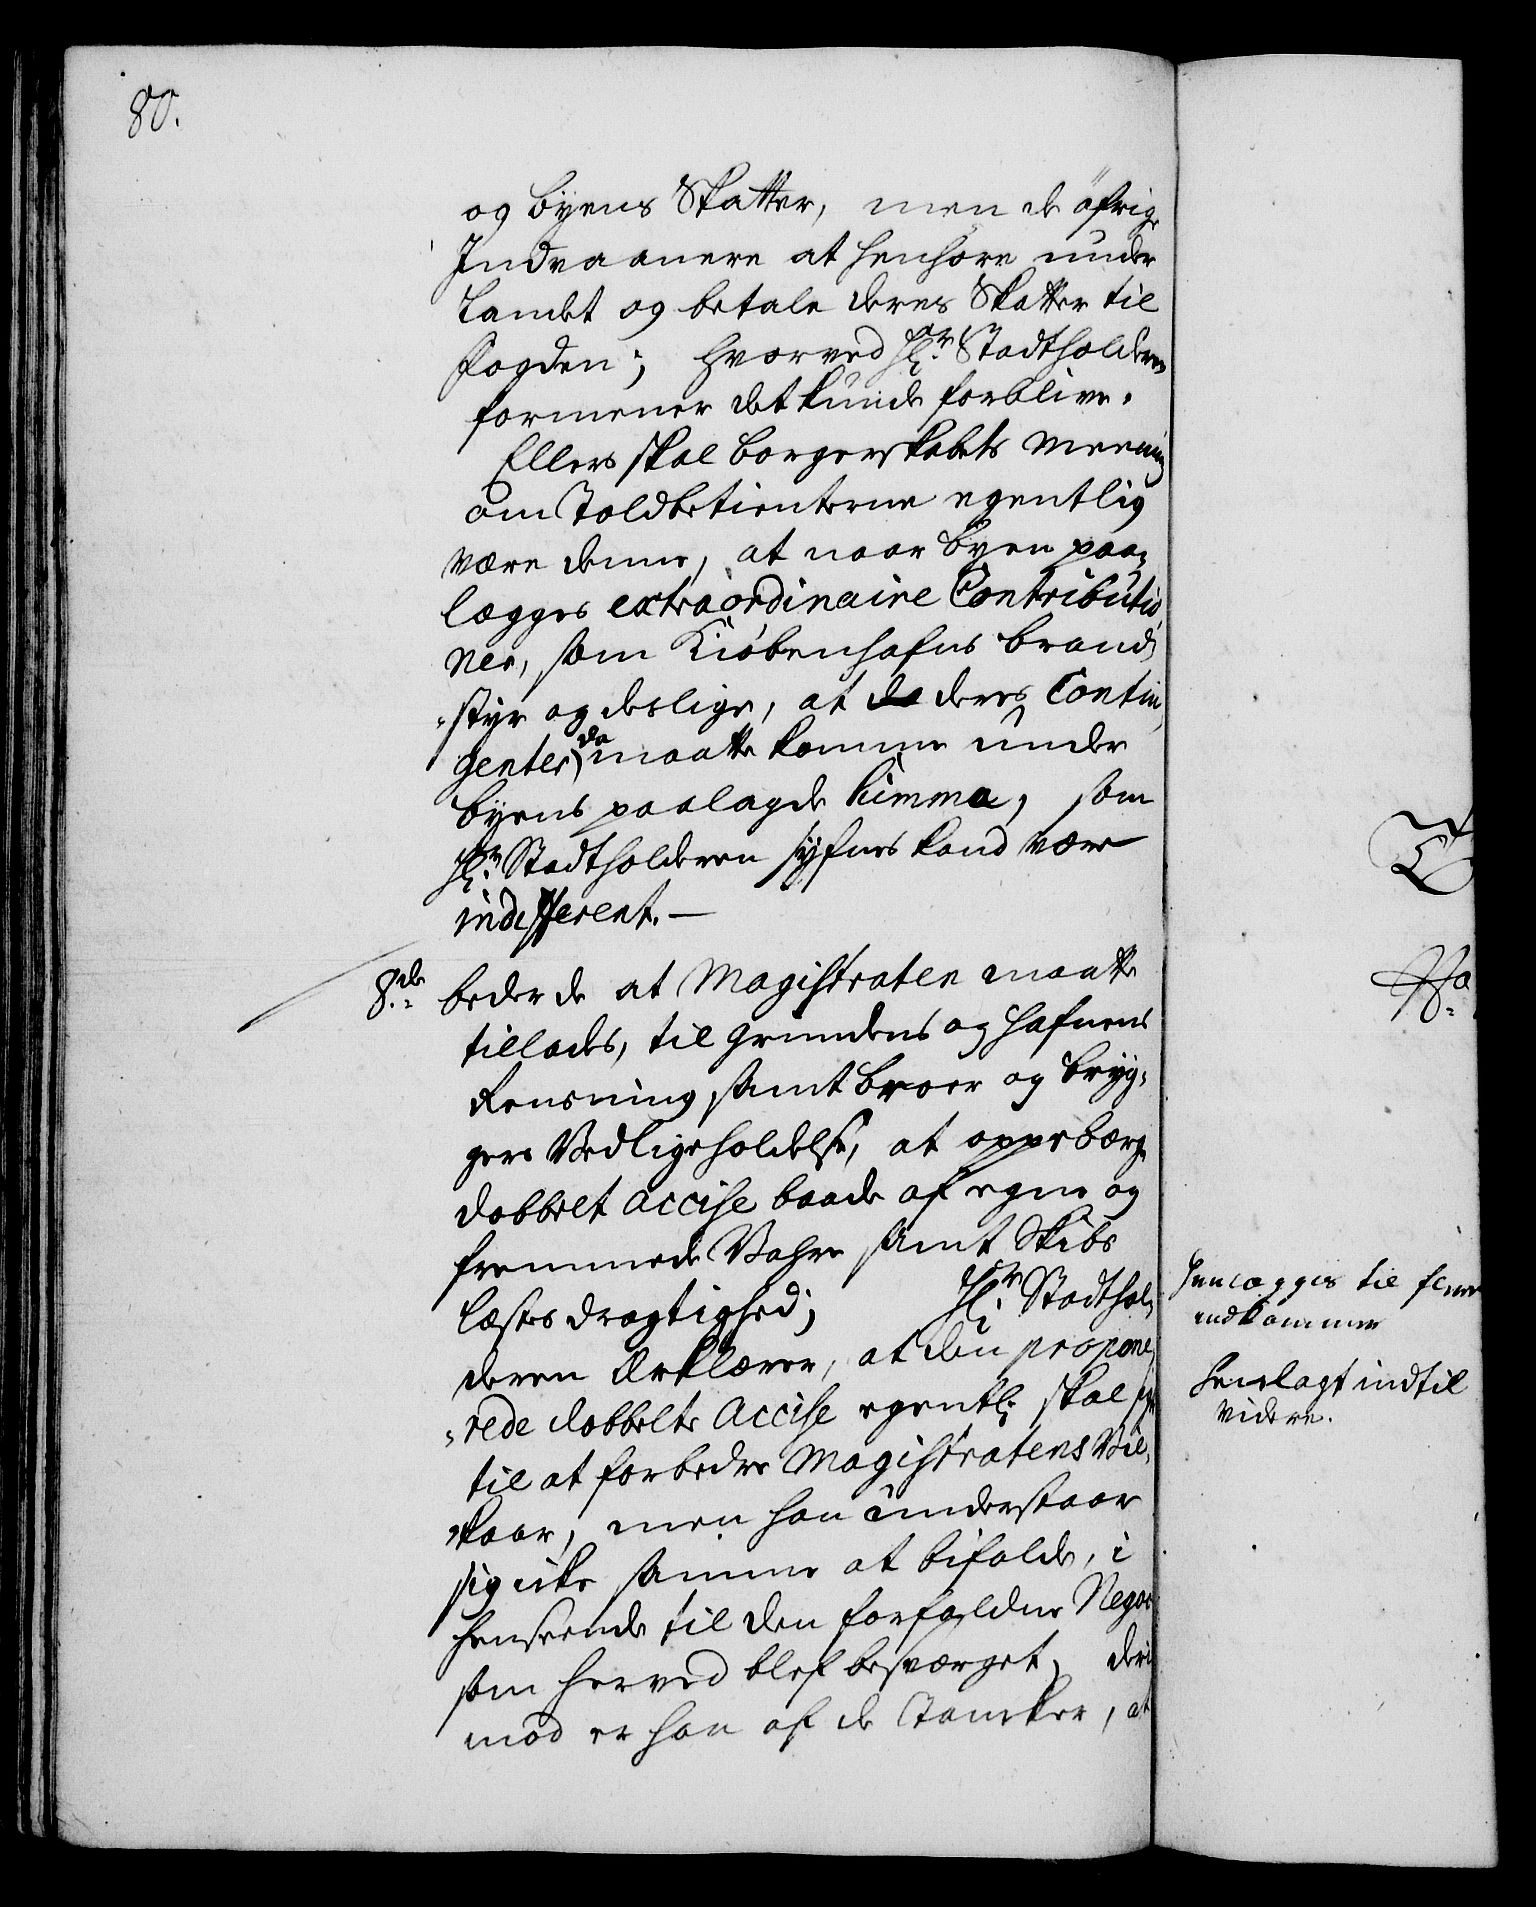 80.
og byens Skatter, men de øfrige
Indvaanere at henhøre under
Landet og betale deres Skatter til
Fogden; hvorved Hr. Stadtholderen
formener det kunde forblive.
Ellers skal borgerskabets meening
om Toldbetienterne egentlig
være denne, at naar byen paa-
lægges extraordinaire Contributio-
ner, som Kiøbenhafns brand-
-styr og deslige, at da deres Contin-
genter da maatte komme under
byens paalagde Summa, som
Hr. Stadtholderen syfnes kand være
indifferent. —
8.de beder de at Magistraten maatte
tillades, til grundens og hafnens
Rensning, samt broer og bryg-
gers Vedligeholdelse, at oppebærge
dobbelt accise baade af egne og
fremmede Vahre samt Skibs
læsters dragtighed; Hr. Stadthol-
deren Erklærer, at den propone-
-rede dobbelte Accise egentl: skal
til at forbedre Magistratens Vil-
-kaar, men han understaar
sig icke samme at bifalde, i
henseende til den forfaldne Negoce
som herved blef besværget, deri-
mod er han af de Tancker, at
Henlægges til
indkommer
Henlagt indtil
videre.
No.